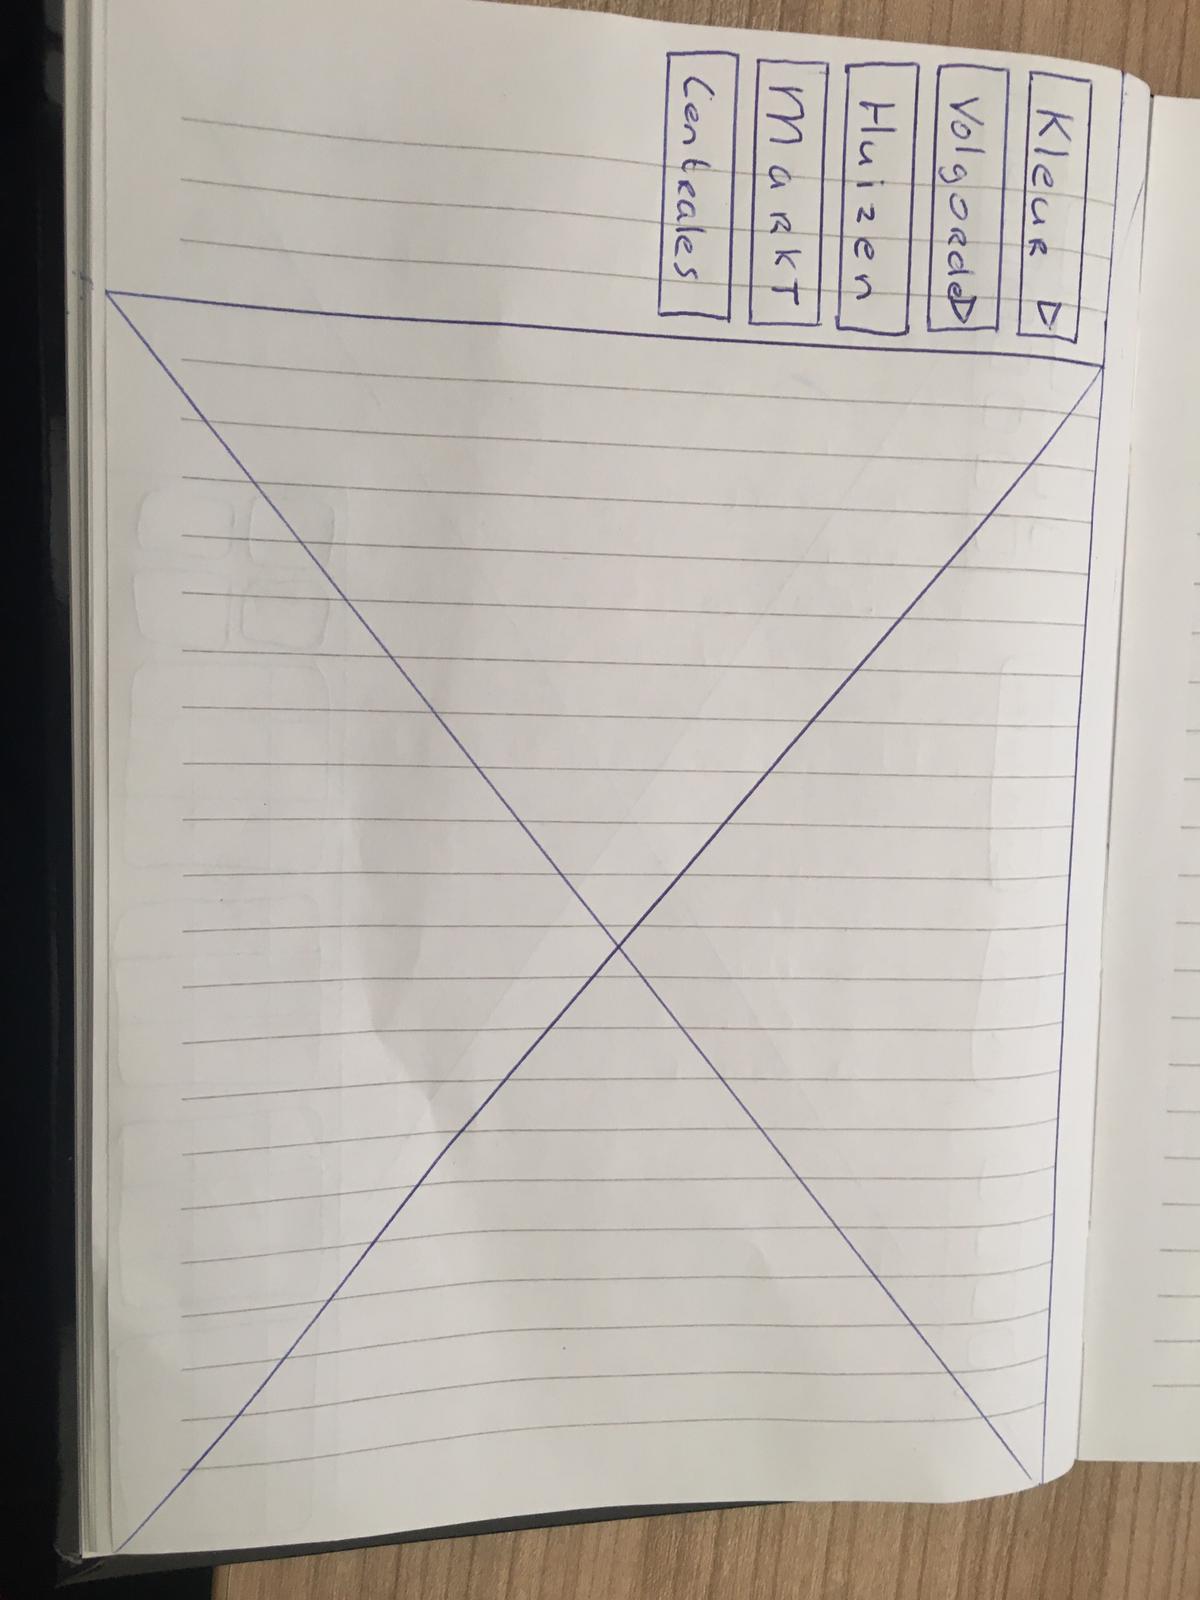 Kleur ▷
Volgorde ▷
Huizen
Markt
Centrales